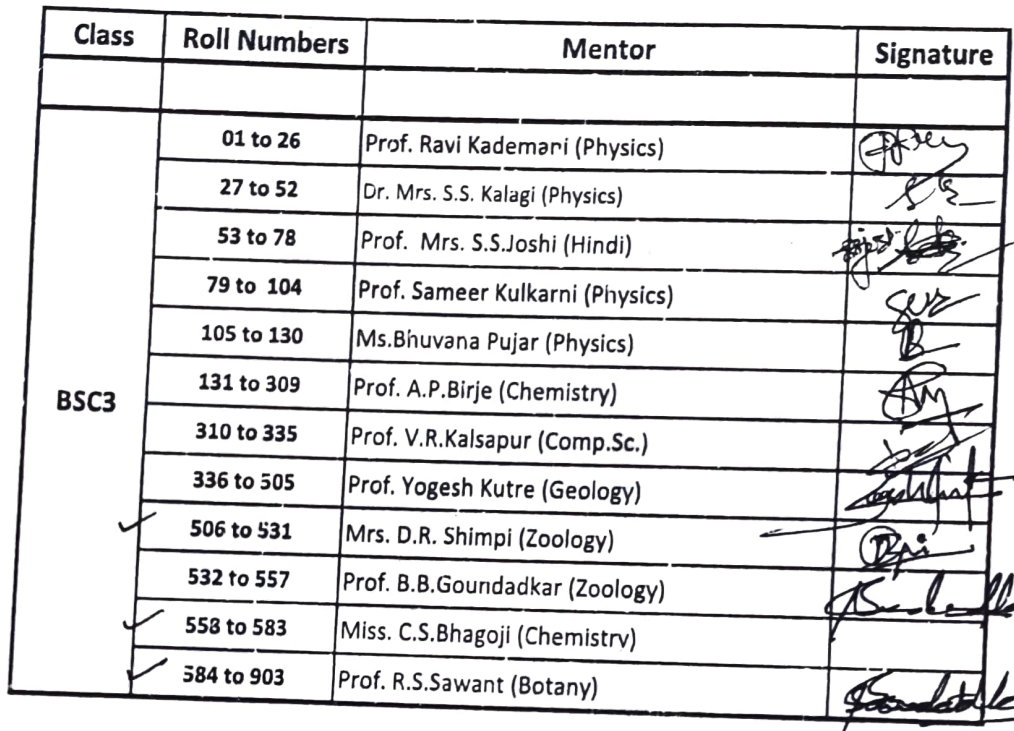 Class Roll Numbers Mentor Signature
01 to 26 Prof. Ravi Kademani (Physics)
27 to 52 Dr. Mrs. S.S. Kalagi (Physics)
53 to 78 Prof. Mrs. S.S.Joshi (Hindi)
79 to 104 Prof. Sameer Kulkarni (Physics)
105 to 130 Ms.Bhuvana Pujar (Physics)
BSC3 131 to 309 Prof. A.P.Birje (Chemistry)
310 to 335 Prof. V.R.Kalsapur (Comp.Sc.)
336 to 505 Prof. Yogesh Kutre (Geology)
506 to 531 Mrs. D.R. Shimpi (Zoology)
532 to 557 Prof. B.B.Goundadkar (Zoology)
558 to 583 Miss. C.S.Bhagoji (Chemistry)
584 to 903 Prof. R.S.Sawant (Botany)